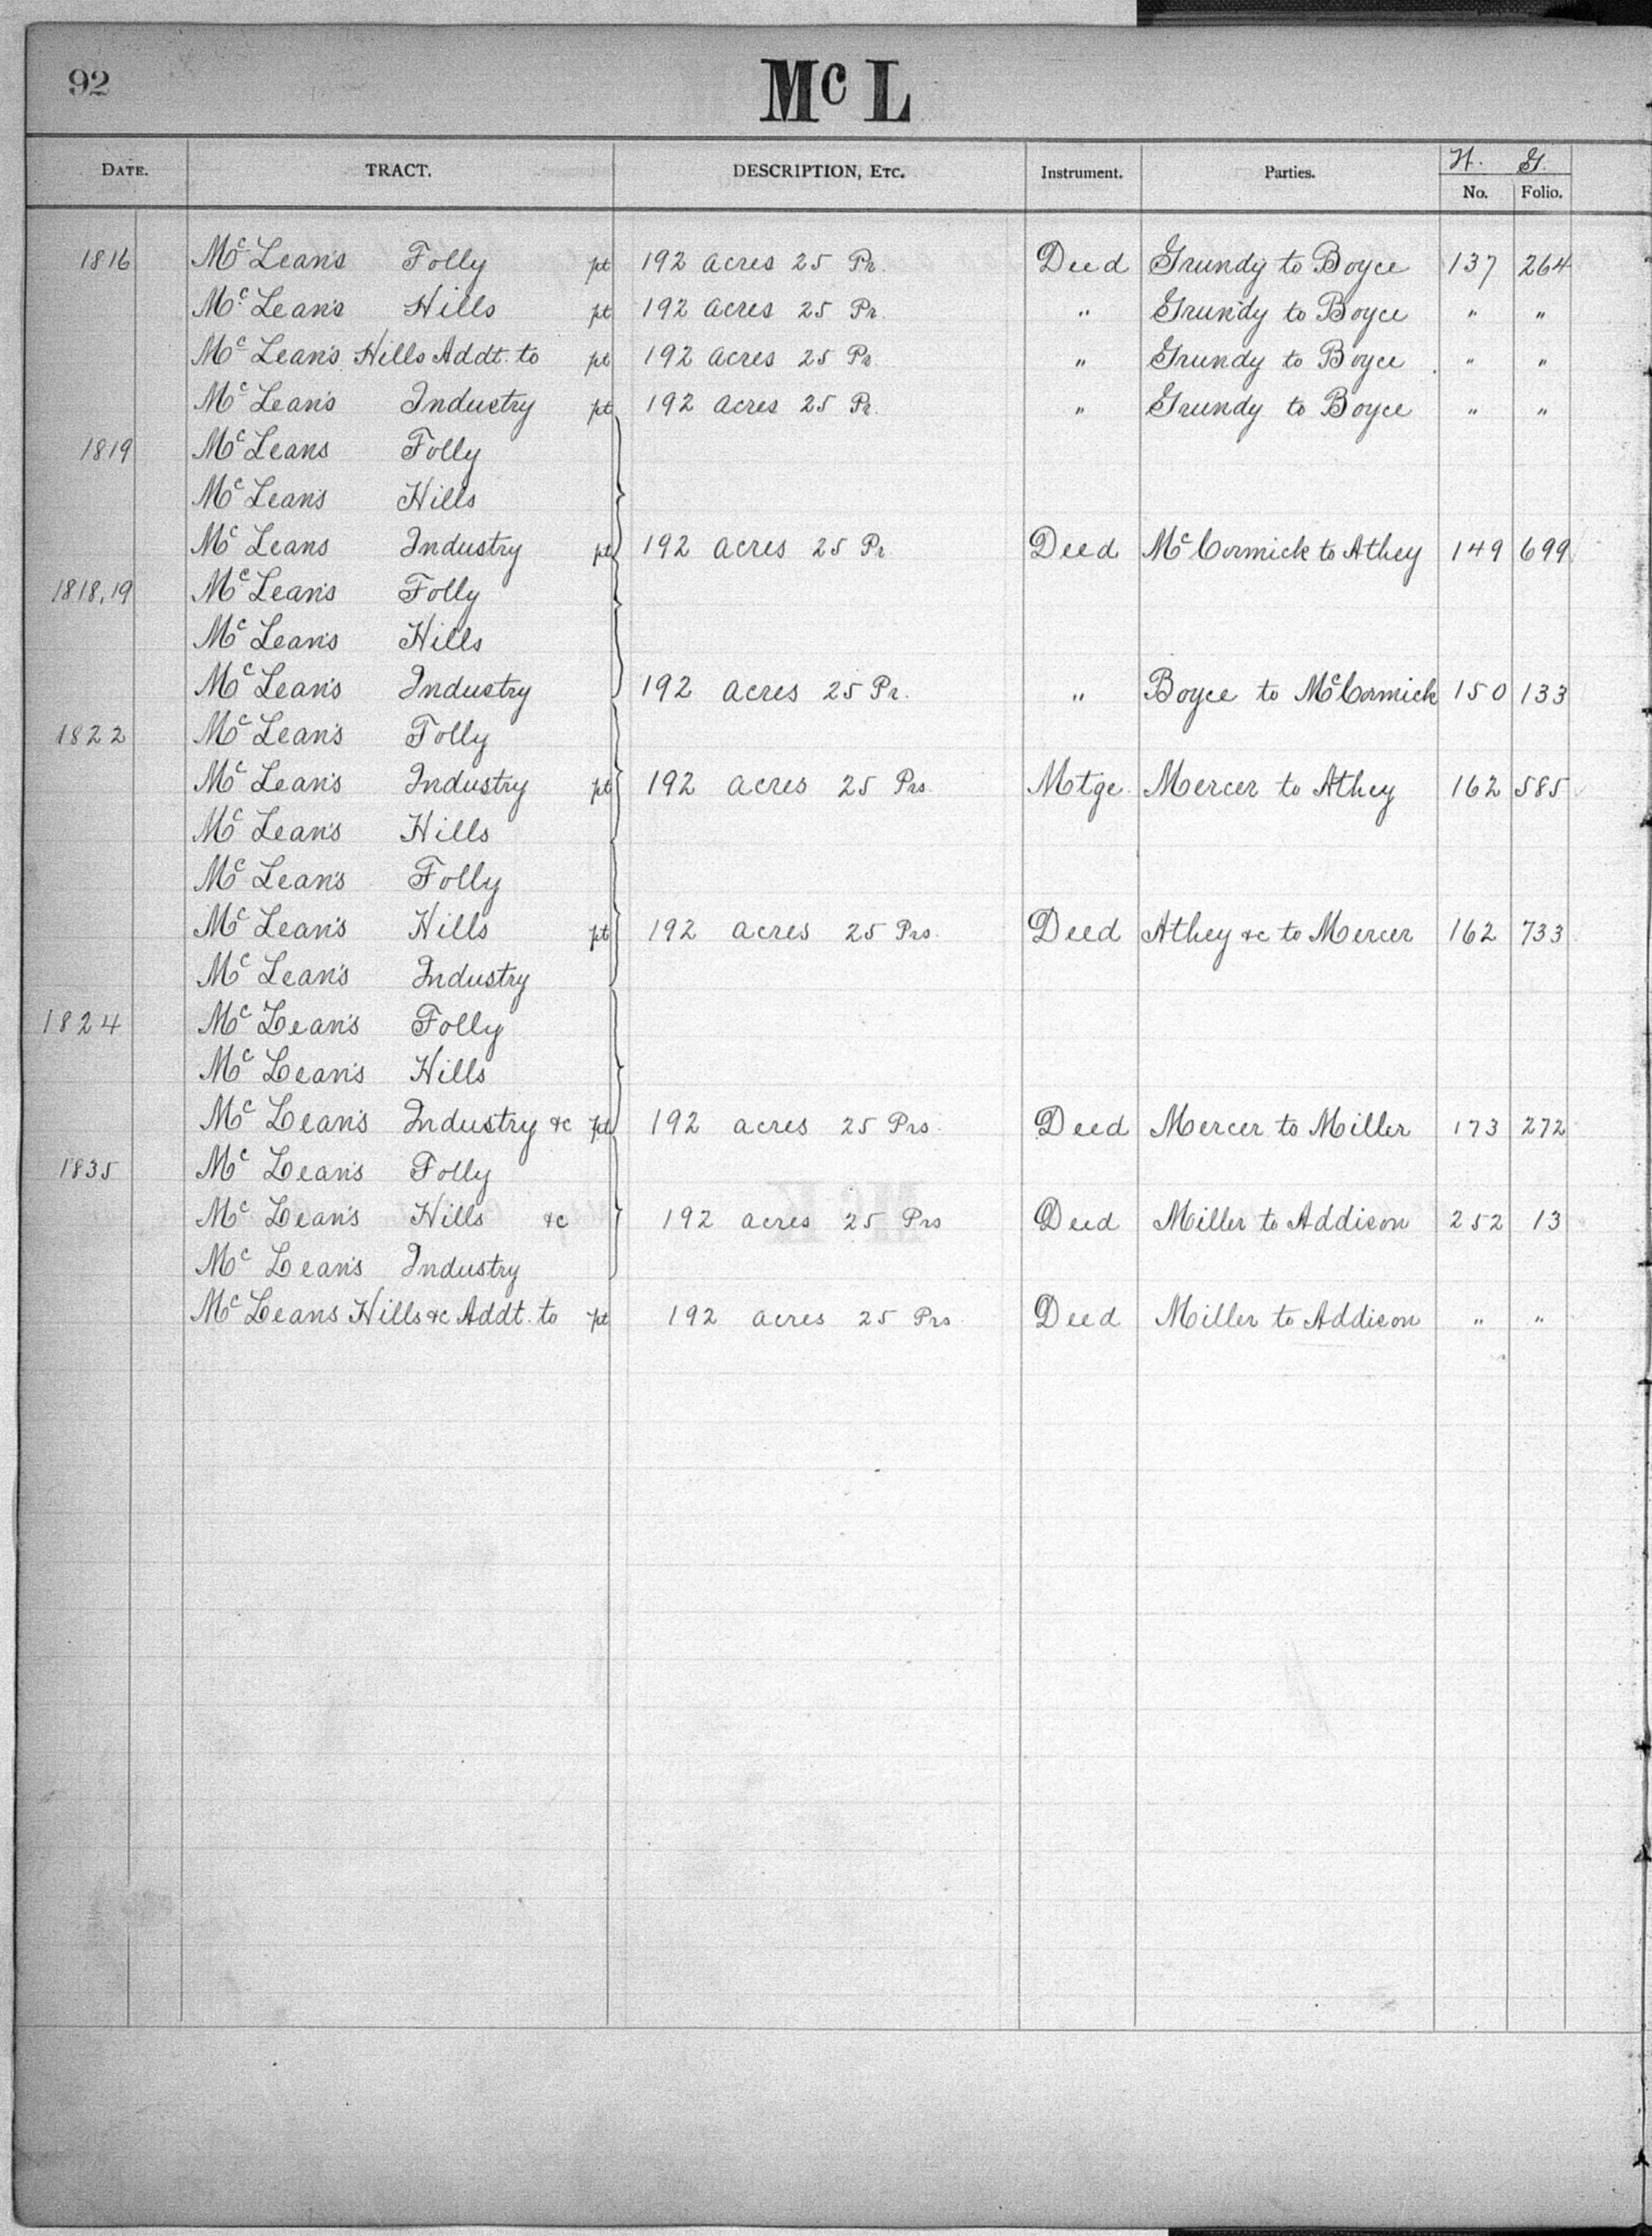 92
Mc L
DATE. TRACT. DESCRIPTION, ETC. Instrument. Parties. H. G.
No. Folio.
1816 Mc Lean's Folly pt 192 acres 25 Pr. Deed Grundy to Boyce 137 264
Mc Lean's Hills pt 192 acres 25 Pr. " Grundy to Boyce " "
Mc Lean's Hills Addt. to pt 192 acres 25 Pr. " Grundy to Boyce " "
Mc Lean's Industry pt 192 acres 25 Pr. " Grundy to Boyce " "
1819 Mc Leans Folly
Mc Lean's Hills
Mc Leans Industry pt 192 acres 25 Pr Deed McCormick to Athey 149 699
1818,19 Mc Lean's Folly
Mc Lean's Hills
Mc Lean's Industry 192 acres 25 Pr. " Boyce to McCormick 150 133
1822 Mc Lean's Folly
Mc Lean's Industry pt 192 acres 25 Prs. Motge Mercer to Athey 162 585
Mc Lean's Hills
Mc Lean's Folly
Mc Lean's Hills pt 192 acres 25 Prs. Deed Athey &c to Mercer 162 733
Mc Lean's Industry
1824 Mc Lean's Folly
Mc Lean's Hills
Mc Lean's Industry &c pt 192 acres 25 Prs. Deed Mercer to Miller 173 272
1835 Mc Lean's Folly
Mc Lean's Hills &c 192 acres 25 Prs Deed Miller to Addison 252 13
Mc Lean's Industry
Mc Leans Hills &c Addt. to pt 192 acres 25 Prs Deed Miller to Addison " "